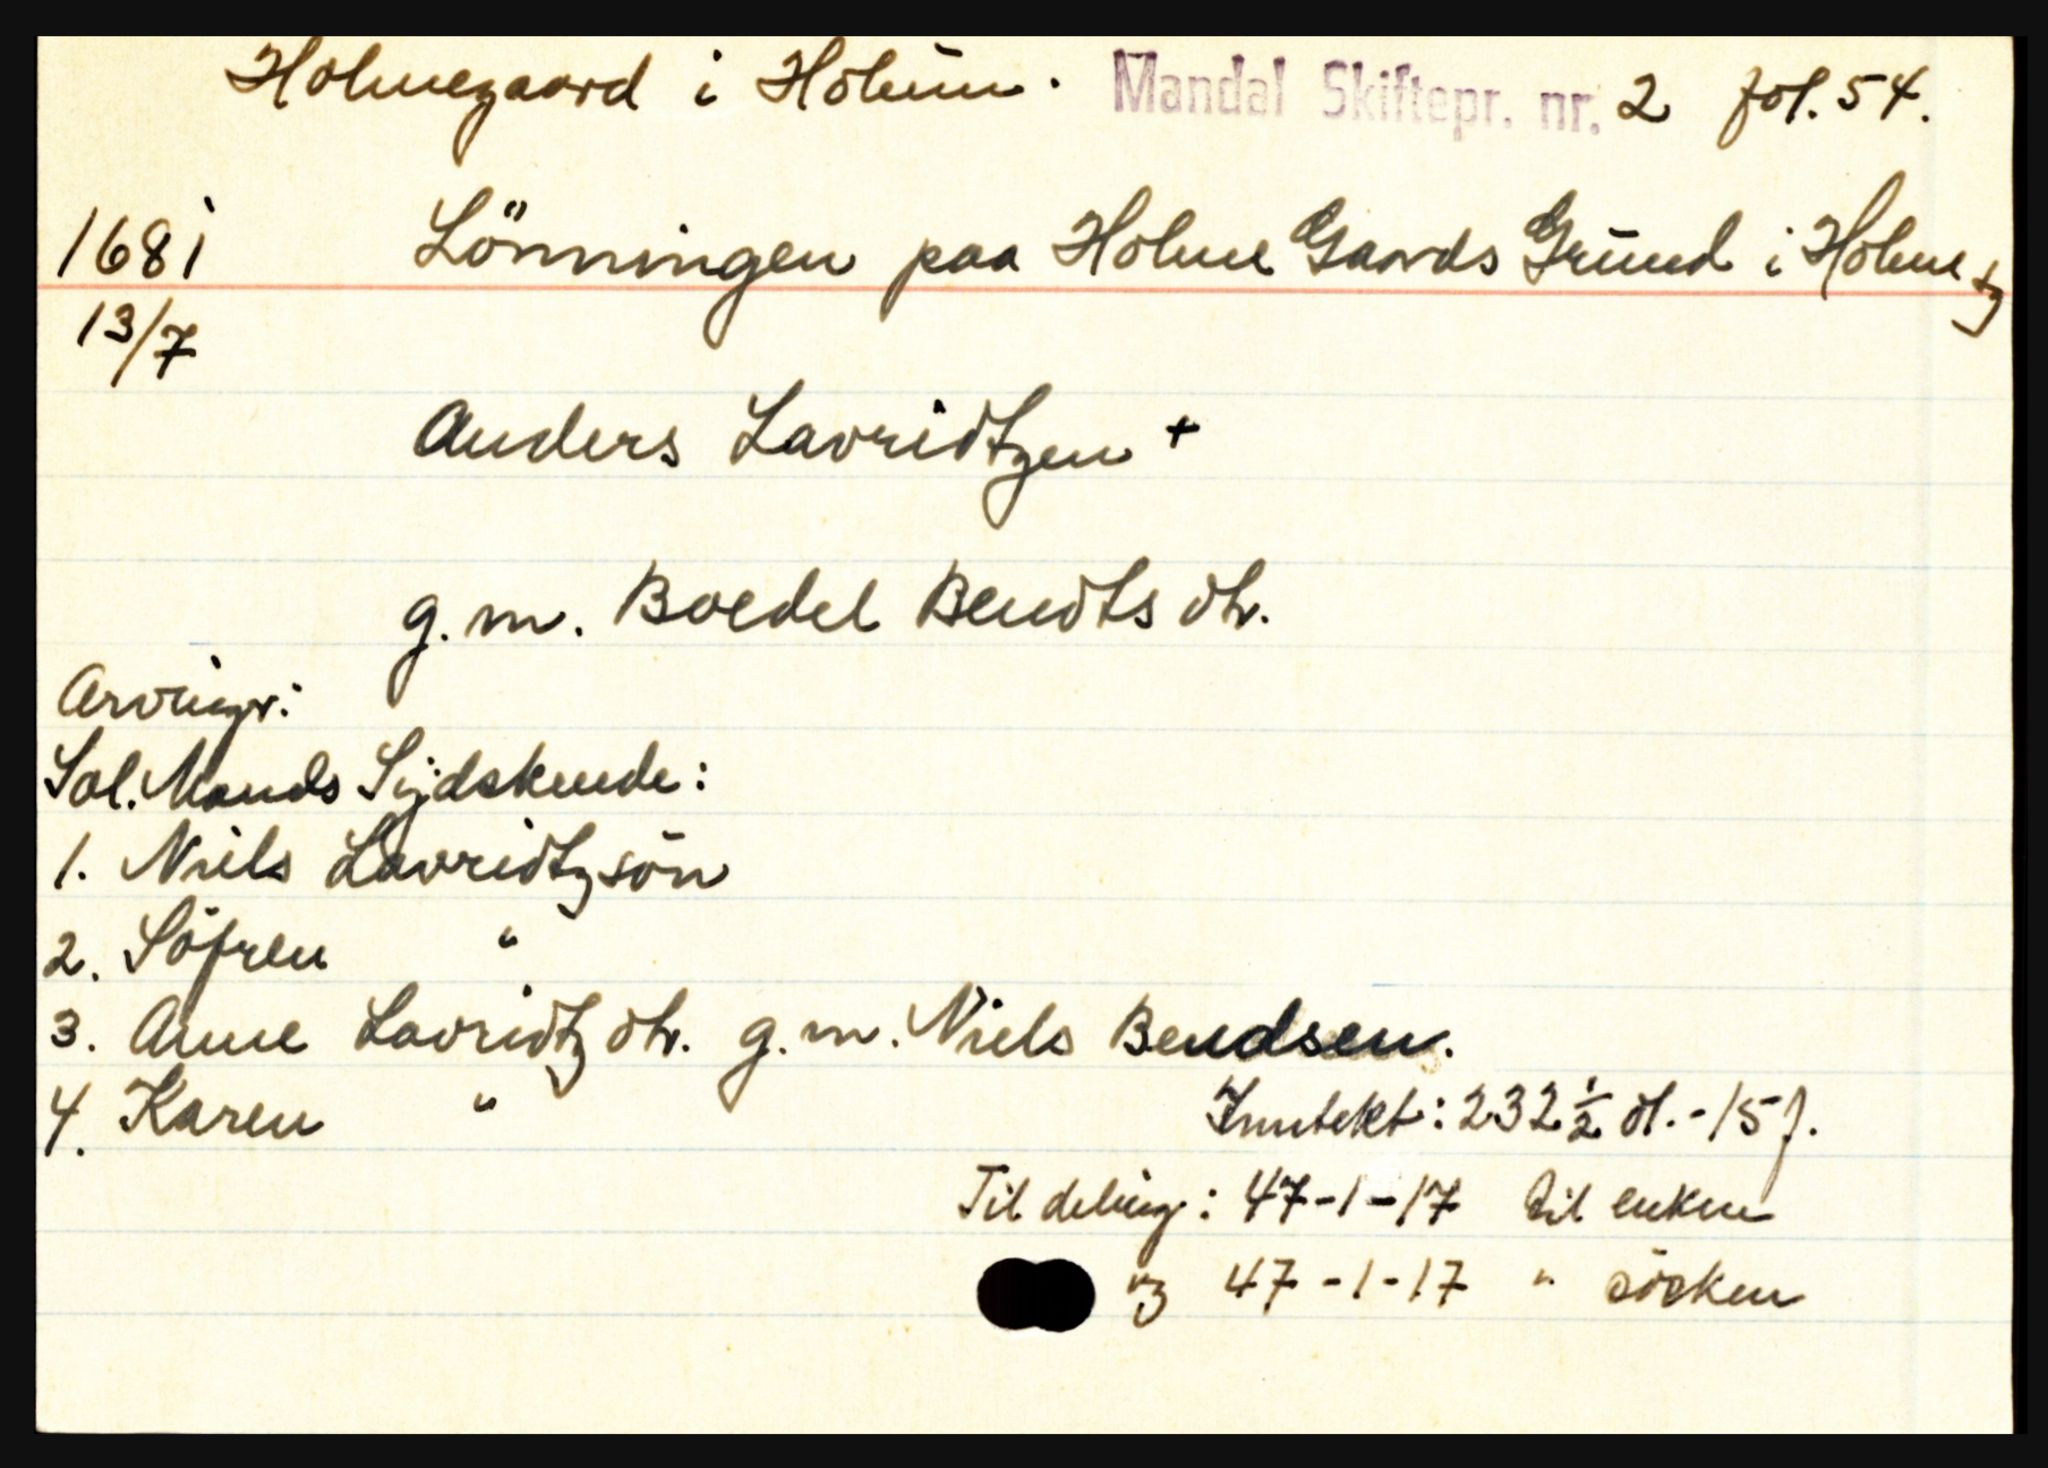 Holmegaard i Holum. Mandal Skiftepr. nr. 2 fol. 54.
1681 Lönningen paa Holme Gaards Grund i Holme tg
13/7
Anders Lavridtzen +
g. m. Boedel Bendts dtr.
Arvingr:
Sal. Mands Sijdskende:
1. Niels Lavridtzsön
2. Söfren "
3. Anne Lavridtz dtr. g. m. Niels Bendsen.
4. Karen "
Inntekt: 232 ½ dl. - 15 f.
Til deling: 47-1-17 til enken
og 47-1-17 " sösken